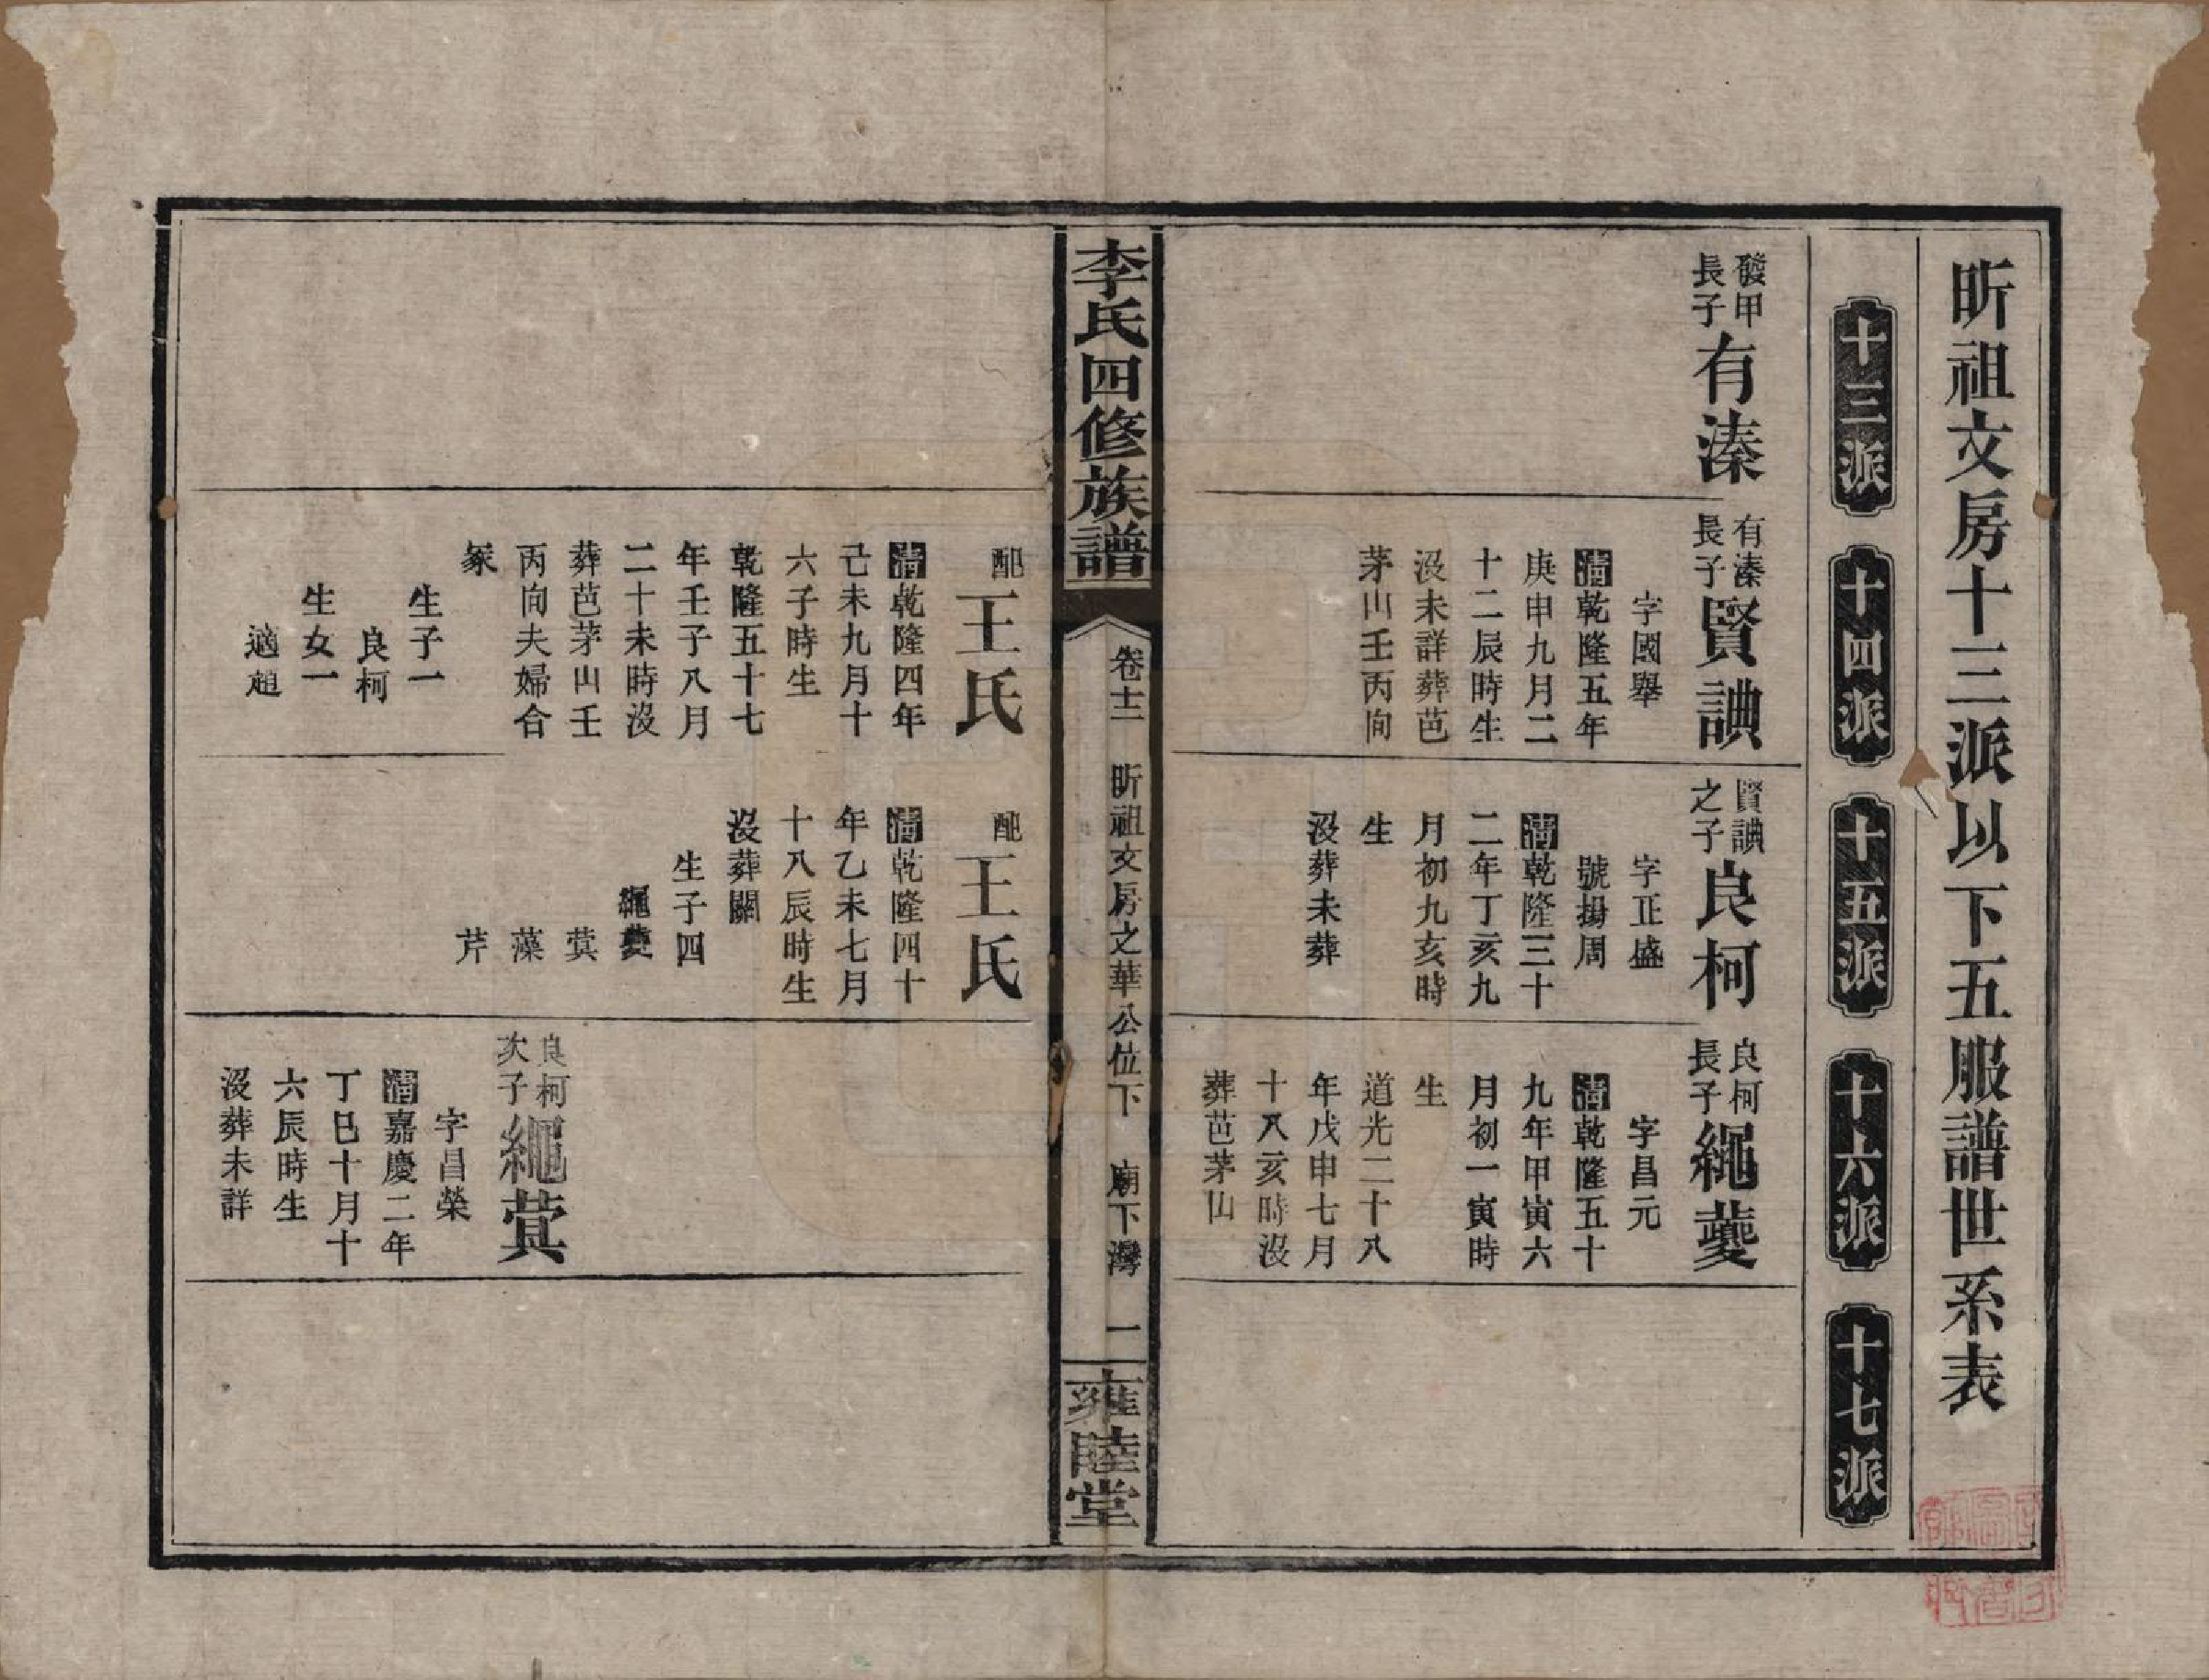 昕祖文房十三派以下五服譜世系表
十三派
十四派
十五派
十六派
十七派
發甲
長子
有溱
有溱
長子
賢
字國舉
清乾隆五年
庚申九月二
十二辰時生
沒未詳葬芭
茅山壬丙向
賢
之子
良柯
字正盛
號揚周
清乾隆三十
二年丁亥九
月初九亥時
生
沒葬未葬
良柯
長子
繩夔
字昌元
清乾隆五十
九年甲寅六
月初一寅時
生
道光二十八
年戊申七月
十八亥時沒
葬芭茅山
李氏四修族譜
卷十二
昕祖文房之華公位下
廟下灣
一
雍睦堂
配
王氏
清乾隆四年
己未九月十
六子時生
乾隆五十七
年壬子八月
二十未時沒
葬芭茅山壬
丙向夫婦合
冢
生子一
良柯
生女一
適趙
配
王氏
清乾隆四十
年乙未七月
十八辰時生
沒葬闕
生子四
繩夔
蓂
藻
芹
良柯
次子
繩蓂
字昌榮
清嘉慶二年
丁巳十月十
六辰時生
沒葬未詳